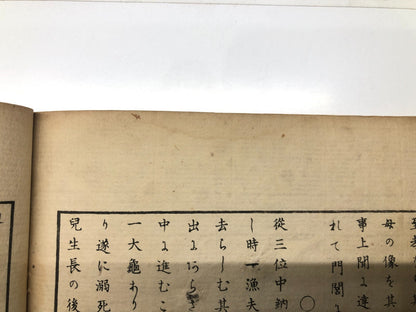 母の像を其
事上聞に達
れて門閭に
〇
從三位中納
し時一漁夫
去らしむ其
出よ
中に進むこ
一大龜あり
り遂に溺死
兒生長の後